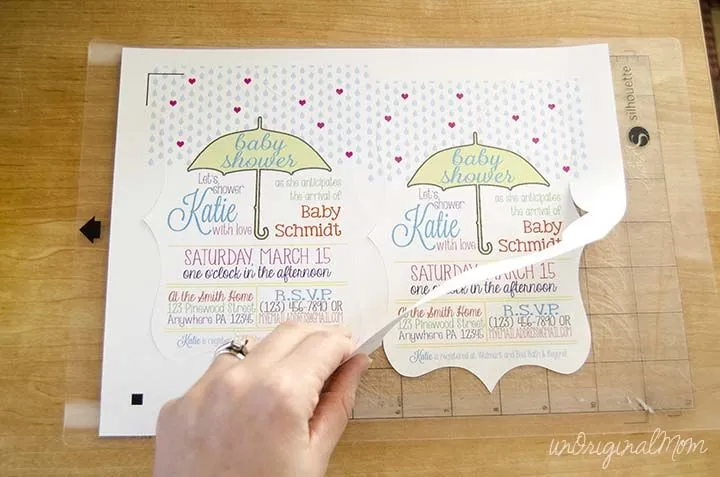 baby
shower
Let's
shower
Katie
with love
as she anticipates
the arrival of
Baby
Schmidt
SATURDAY, MARCH 15
one o'clock in the afternoon
At the Smith Home
123 Pinewood Street
Anywhere PA 12345
R.S.V.P.
(123) 456-7890 OR
MYEMAILADDRESS@GMAIL.COM
Katie is regis
baby
shower
Let's
shower
Katie
with love
as she anticipates
the arrival of
Baby
Schmidt
SATURDAY, MARCH 15
one o'clock in the afternoon
At the Smith Home
123 Pinewood Street
Anywhere PA 12345
R.S.V.P.
(123) 456-7890 OR
MYEMAILADDRESS@GMAIL.COM
Katie is registered at Walmart and Bed Bath & Beyond
silhouette
unOriginalMom